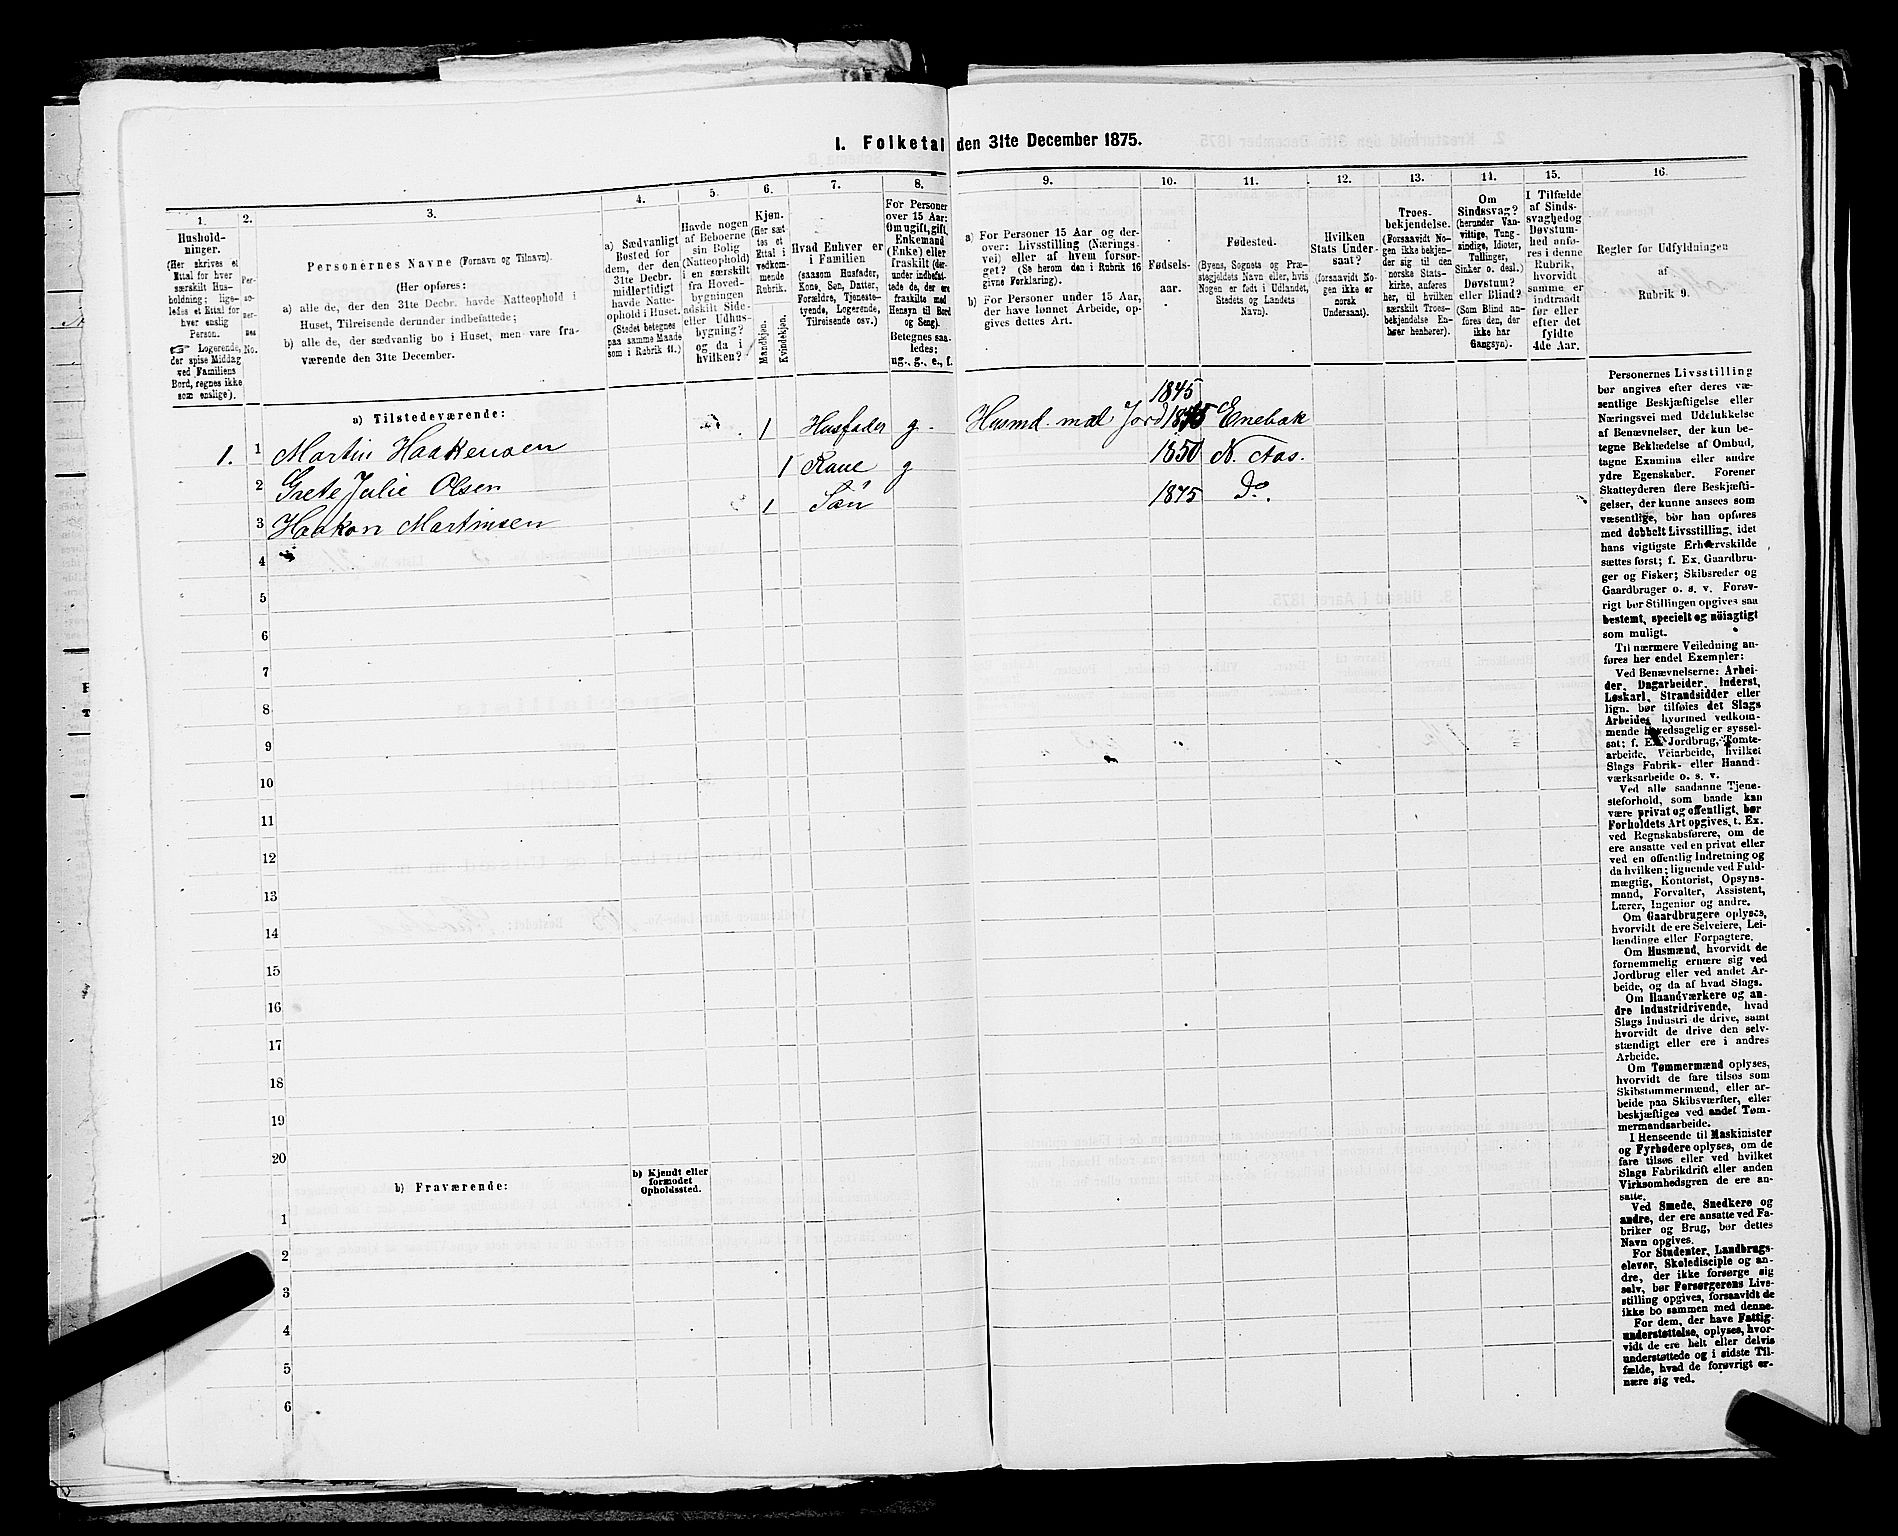 I. Folketal den 31te December 1875.
1. 2. 3. 4. 5. 6. 7. 8. 9. 10. 11. 12. 13. 14. 15. 16.
Hushold-
ninger.
(Her skrives et
Ettal for hver
særskilt Hus-
holdning; lige-
ledes et Ettal for
hver enslig
Person.
☞ Logerende,
der spise Middag
ved Familiens
Bord, regnes ikke
som enslige).
Per-
so-
ner-
nes
No.
Personernes Navne (Fornavn og Tilnavn).
(Her opføres:
a) alle de, der den 31te Decbr. havde Natteophold i
Huset, Tilreisende derunder indbefattede;
b) alle de, der sædvanlig bo i Huset, men vare fra-
værende den 31te December.
a) Sædvanligt
Bosted for
dem, der den
31te Decbr.
midlertidigt
havde Natte-
ophold i Huset.
(Stedet betegnes
paa samme Maade
som i Rubrik 11.)
Havde nogen
af Beboerne
sin Bolig
(Natteophold)
i en særskilt
fra Hoved-
bygningen
adskilt Side-
eller Udhus-
bygning?
og da i
hvilken?
Kjøn.
(Her sæt-
tes et
Ettal i
vedkom-
mende
Rubrik.
Mandkjøn.
Kvindekjøn.
Hvad Enhver er
i Familien
(saasom Husfader,
Kone, Søn, Datter,
Forældre, Tjeneste-
tyende, Logerende,
Tilreisende osv.)
For Personer
over 15 Aar:
Om ugift, gift,
Enkemand
(Enke) eller
fraskilt (der-
under indbefat-
tede de, der ere
fraskilte med
Hensyn til Bord
og Seng).
Betegnes saa-
ledes:
ug., g., e., f.
a) For Personer 15 Aar og der-
over: Livsstilling (Nærings-
vei) eller af hvem forsør-
get? (Se herom den i Rubrik 16
givne Forklaring).
b) For Personer under 15 Aar,
der have lønnet Arbeide, op-
gives dettes Art.
Fødsels-
aar.
Fødested.
(Byens, Sognets og Præ-
stegjeldets Navn eller, hvis
Nogen er født i Udlandet,
Stedets og Landets
Navn).
Hvilken
Stats Under-
saat?
(forsaavidt No-
gen ikke er
norsk
Undersaat).
Troes-
bekjendelse.
(Forsaavidt No-
gen ikke bekjen-
der sig til den
norske Stats-
kirke, anføres
her, til hvilken
særskilt Troes-
bekjendelse En-
hver henhører).
Om
Sindssvag?
(herunder Van-
vittige, Tung-
sindige, Idioter,
Tullinger,
Sinker o. desl.)
Døvstum?
eller Blind?
(Som Blind an-
føres den, der
ikke har
Gangsyn).
I Tilfælde
af Sinds-
svaghed og
Døvstum-
hed anfø-
res i denne
Rubrik,
hvorvidt
samme er
indtraadt
før eller
efter det
fyldte
4de Aar.
Regler for Udfyldningen
af
Rubrik 9.
a) Tilstedeværende:
1845
1. 1 Martin Haakensen 1 Husfader g. Husmd. med Jord Enebak
2 Grete Julie Olsen 1 Kone g 1850 N. Aas.
3 Haakon Martinsen 1 Søn 1875 Do.
4
5
6
7
8
9
10
11
12
13
14
15
16
17
18
19
20
b) Fraværende: b) Kjendt eller
formodet
Opholdssted.
1
2
3
4
5
6
Personernes Livsstilling
bør angives efter deres væ-
sentlige Beskjæftigelse eller
Næringsvei med Udelukkelse
af Benævnelser, der kun be-
tegne Beklædelse af Ombud,
tagne Examina eller andre
ydre Egenskaber. Forener
Skatteyderen flere Beskjæfti-
gelser, der kunne ansees som
væsentlige, bør han opføres
med dobbelt Livsstilling, idet
hans vigtigste Erhvervskilde
sættes først; f. Ex. Gaardbru-
ger og Fisker; Skibsreder og
Gaardbruger o. s. v. Forøv-
rigt bør Stillingen opgives saa
bestemt, specielt og nøiagtigt
som muligt.
Til nærmere Veiledning an-
føres her endel Exempler:
Ved Benævnelserne: Arbei-
der, Dagarbeider, Inderst,
Løskarl, Strandsidder eller
lign. bør tilføies det Slags
Arbeide, hvormed vedkom-
mende hovedsagelig er syssel-
sat; f. Ex. Jordbrug, Tomte-
arbeide, Veiarbeide, hvilket
Slags Fabrik- eller Haand-
værksarbeide o. s. v.
Ved alle saadanne Tjene-
steforhold, som baade kan
være privat og offentligt, bør
Forholdets Art opgives, t. Ex.
ved Regnskabsførere, om de
ere ansatte ved en privat eller
ved en offentlig Indretning og
da hvilken; lignende ved Fuld-
mægtig, Kontorist, Opsyns-
mand, Forvalter, Assistent,
Lærer, Ingeniør og andre.
Om Gaardbrugere oplyses,
hvorvidt de ere Selveiere, Lei-
lændinge eller Forpagtere.
Om Husmænd, hvorvidt de
fornemmelig ernære sig ved
Jordbrug eller ved andet Ar-
beide, og da af hvad Slags.
Om Haandværkere og an-
dre Industridrivende, hvad
Slags Industri de drive, samt
hvorvidt de drive den selv-
stændigt eller ere i andres
Arbeide.
Om Tømmermænd oplyses,
hvorvidt de fare tilsøs som
Skibstømmermænd, eller ar-
beide paa Skibsværfter, eller
beskjæftiges ved andet Tøm-
mermandsarbeide.
I Henseende til Maskinister
og Fyrbødere oplyses, om de
fare tilsøs eller ved hvilket
Slags Fabrikdrift eller anden
Virksomhedsgren de ere an-
satte.
Ved Smede, Snedkere og
andre, der ere ansatte ved Fa-
briker og Brug, bør dettes
Navn opgives.
For Studenter, Landbrugs-
elever, Skoledisciple og an-
dre, der ikke forsørge sig
selv, bør Forsørgerens Livs-
stilling opgives, forsaavidt de
ikke bo sammen med denne.
For dem, der have Fattig-
understøttelse, oplyses, hvor-
vidt de ere helt eller delvis
understøttede og i sidste Til-
fælde, hvad de forøvrigt er-
nære sig ved.